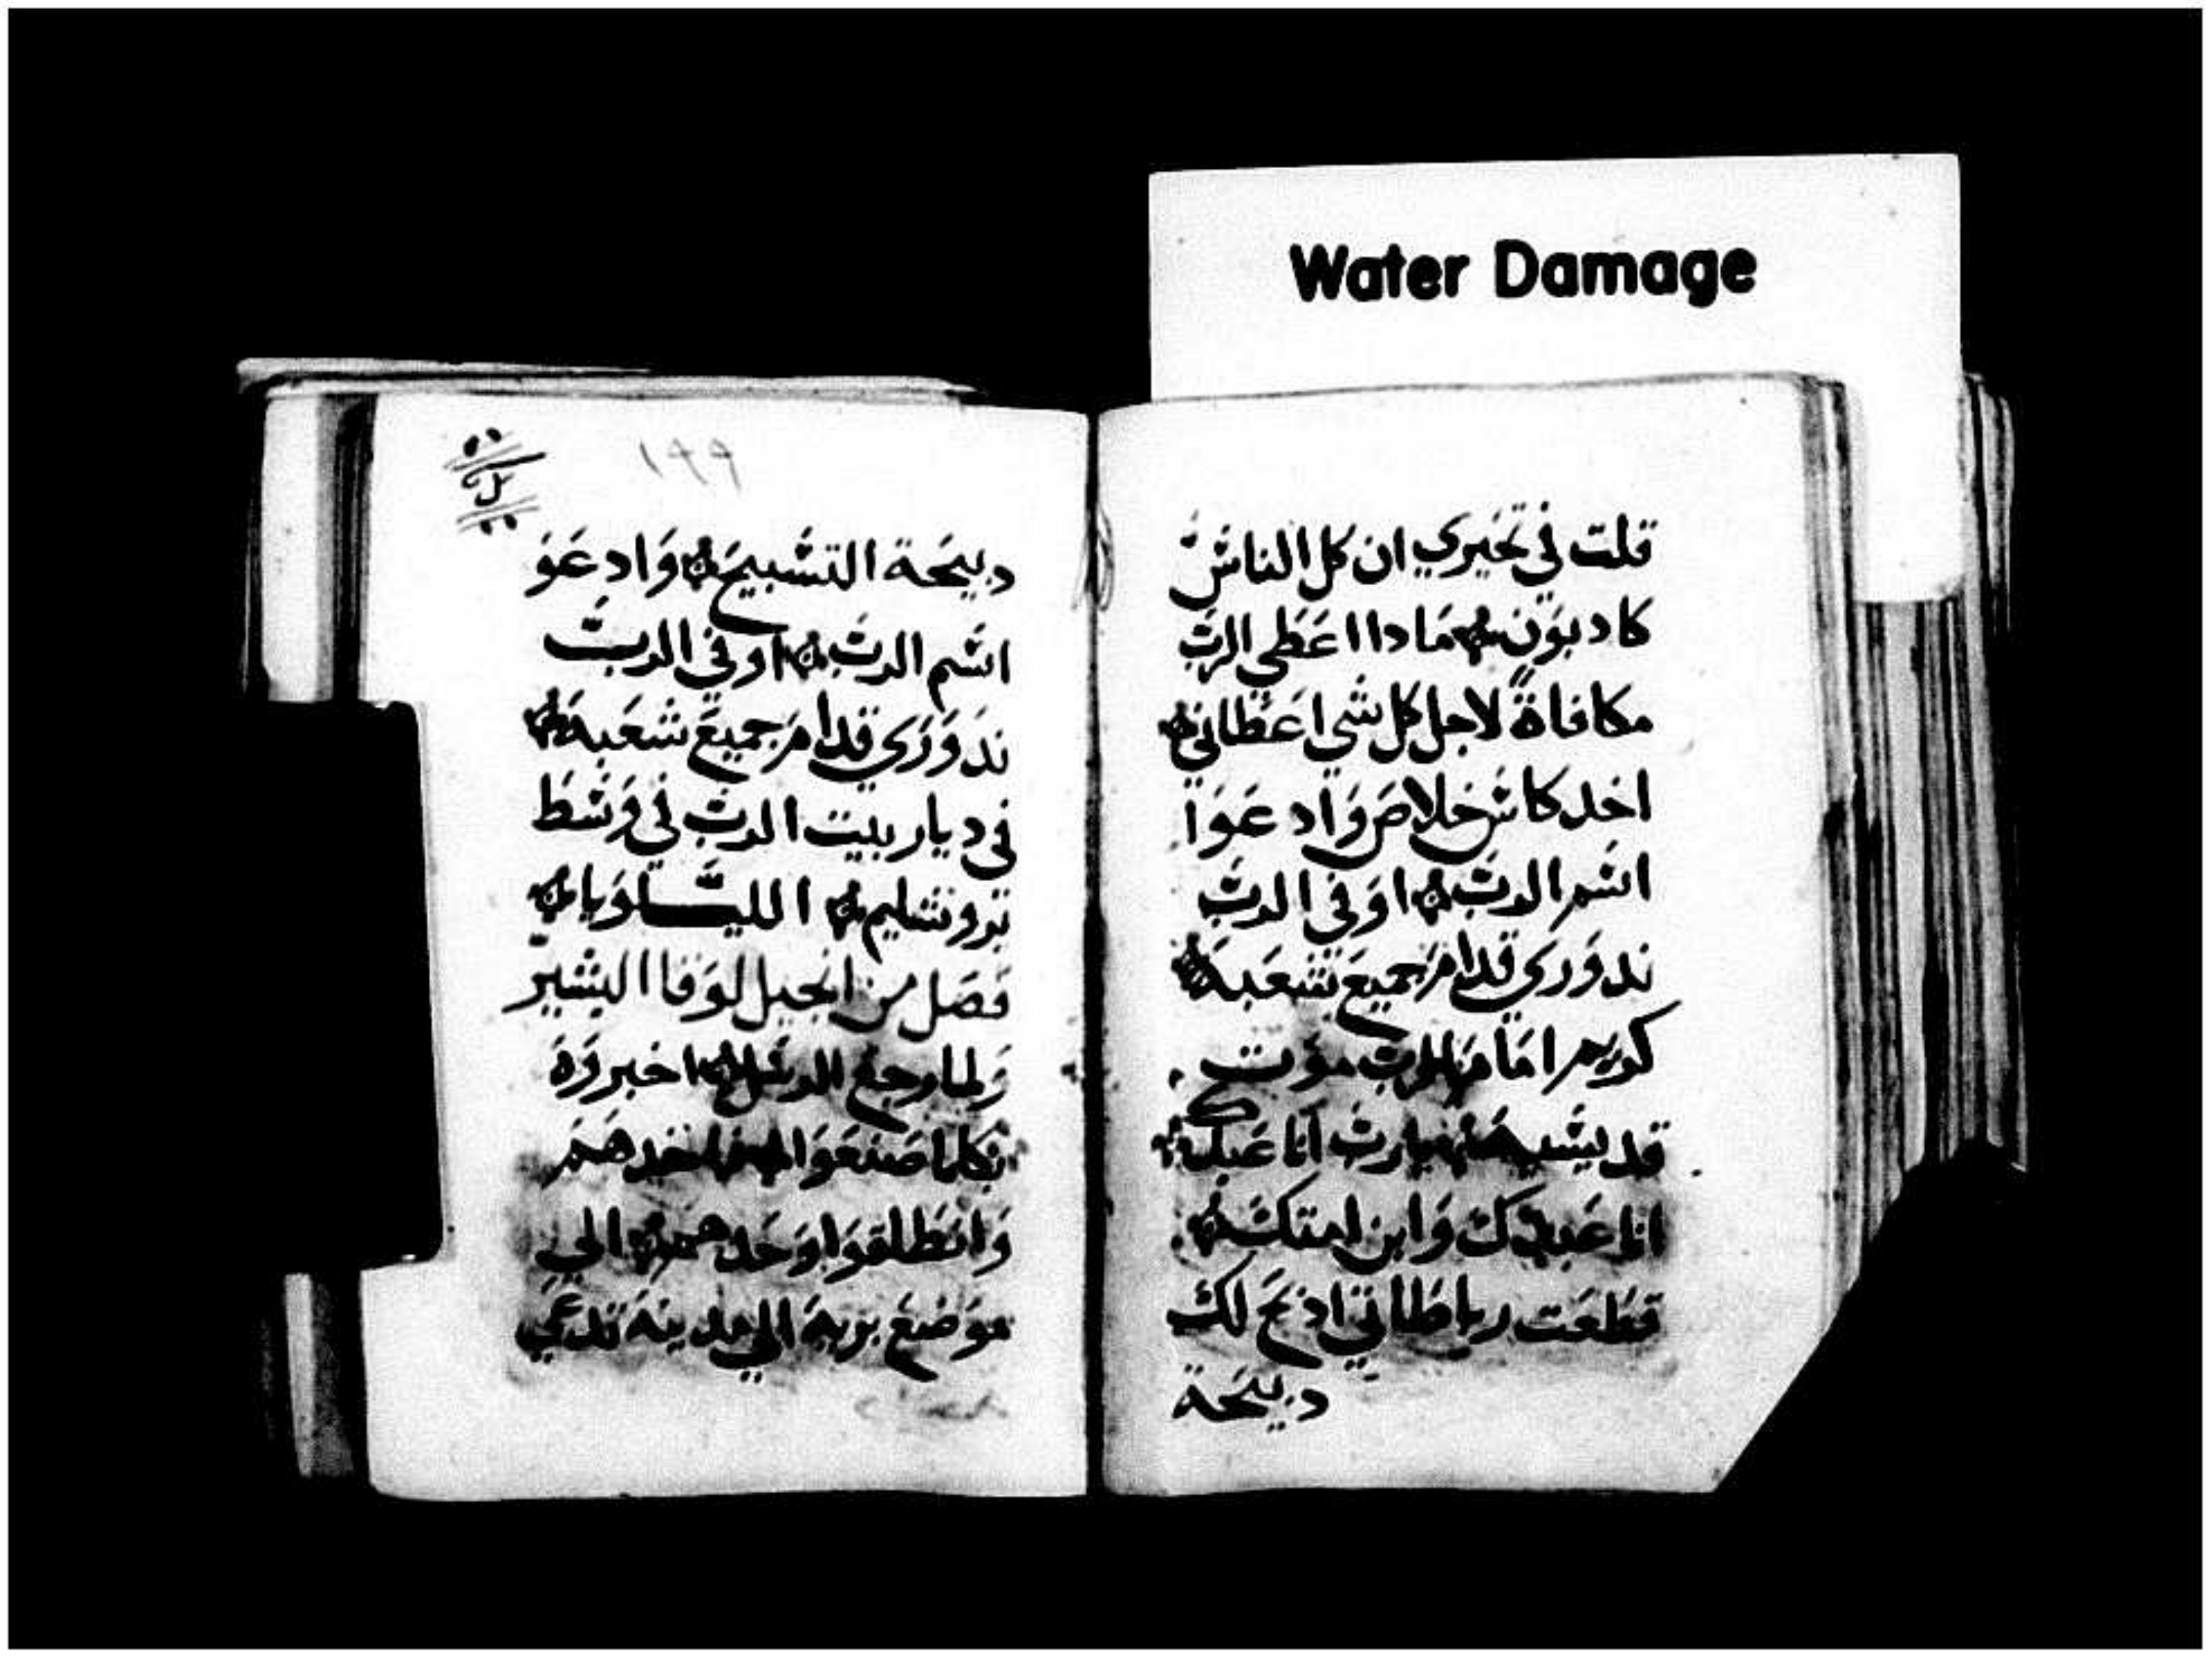 Water Damage
قلت في تحيري ان كل الناس
كادبون مادا اعطي الرب
مكافاة لاجل كل شي اعطاني
اخد كاس خلاص وادعوا
اسم الرب اوفي الرب
ندوري قدام جميع شعبه
كريم امام الرب موت
قديسيه يارب انا عبدك
انا عبدك وابن امتك
قطعت رباطاتي ادبح لك
دبيحة
١٩٩
دبيحة التسبيح وادعو
اسم الرب اوفي الرب
ندوري قدام جميع شعبه
في ديار بيت الرب في وسط
يروشليم الليلويا
فصل من انجيل لوقا البشير
ولما رجع الرسل اخبروه
بكلما صنعوا فاخدهم
وانطلقوا وحدهم الي
موضع بريه الي مدينه تدعي